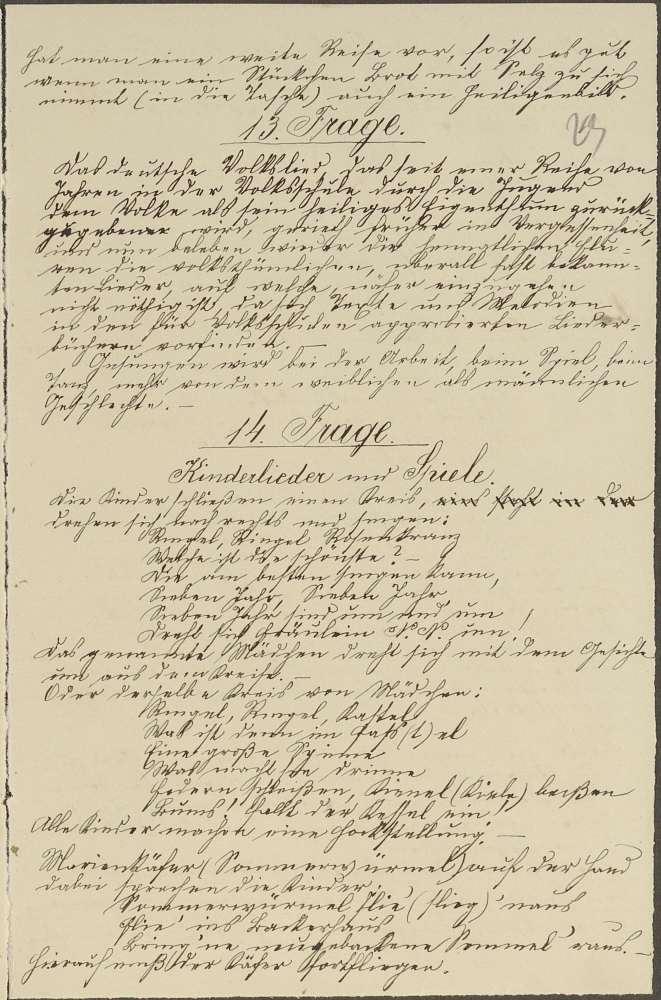 Hat man eine weite Reise vor, so ist es gut
wenn man ein Stückchen Brot mit Salz zu sich
nimmt (in die Tasche) auch ein Heiligenbild.
13. Frage.
23
Das deutsche Volkslied, das seit einer Reihe von
Jahren in der Volksschule durch die Jugend
dem Volke als sein heiliges Eigenthum zurück=
gegeben wird, gerieth früher in Vergessenheit,
und nun beleben wieder die heimatlichen Flu=
ren die volksthümlichen, überall fast bekann=
ten Lieder, auf welche, näher einzugehen
nicht nöthig ist, da sich Texte und Melodien
in den für Volksschulen approbierten Lieder=
büchern vorfinden. —
Gesungen wird bei der Arbeit, beim Spiel, beim
Tanz, mehr von dem weiblichen als männlichen
Geschlechte. —
14. Frage.
Kinderlieder und Spiele.
Die Kinder schließen einen Kreis, eins steht in der
drehen sich nach rechts und singen:
Ringel, Ringel Rosenkranz
Welche ist die schönste? —
Die am besten singen kann,
Sieben Jahr, Sieben Jahr
Sieben Jahr sind um und um
Dreht sich Fräulein N. N. um!
Das genannte Mädchen dreht sich mit dem Gesichte
um aus dem Kreise. —
Oder derselbe Kreis von Mädchen:
Ringel, Ringel, Kastel
Was ist denn im Fass(t)el
Eine große Spinne
Was macht sie drinne
Federn schleißen, Kienel (Kiele) beißen
Bums! fallt der Kessel ein!
Alle Kinder machen eine Hockstellung. —
Marienkäfer (Sommerwürmel) auf der Hand
dabei sprechen die Kinder:
Sommerwürmel flie' (flieg) 'naus
Flie' ins Backerhaus
Bring 'ne neugebackene Semmel 'raus. —
Hierauf muß der Käfer fortfliegen.